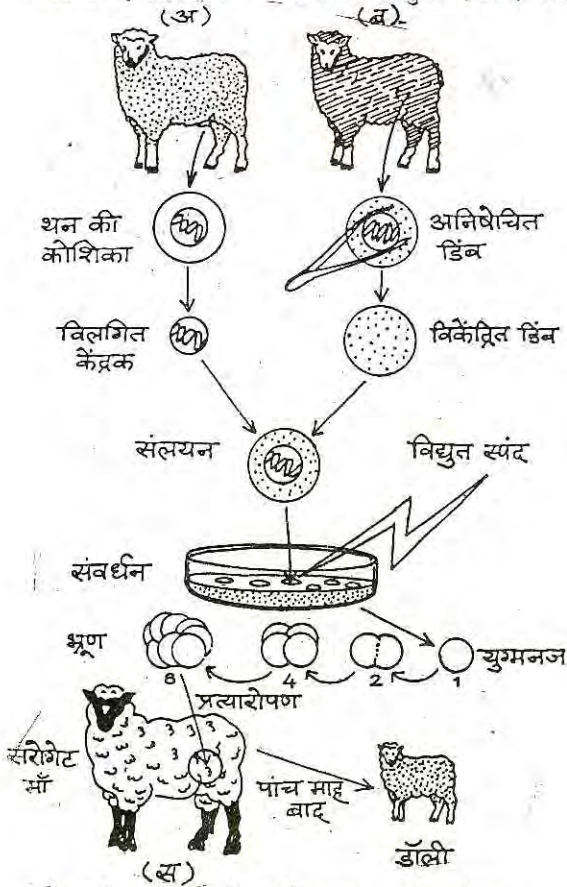 (अ)
(ब)
थन की
कोशिका
अनिषेचित
डिंब
विलगित
केंद्रक
विकेंद्रित डिंब
संलयन
विद्युत स्पंद
संवर्धन
भ्रूण
8
4
2
1
युग्मनज
प्रत्यारोपण
सरोगेट
माँ
पांच माह
बाद
डॉली
(स)